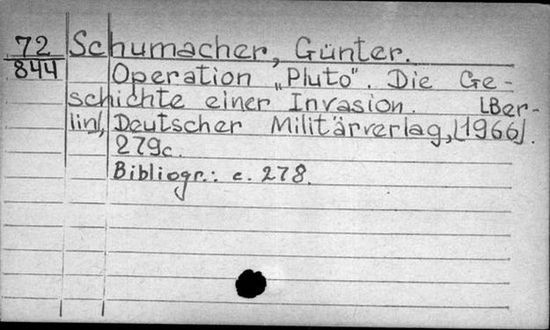 72 Schumacher, Günter.
844 Operation „Pluto". Die Ge-
schichte einer Invasion. [Ber-
lin], Deutscher Militärverlag, [1966].
279c.
Bibliogr.: c. 278.